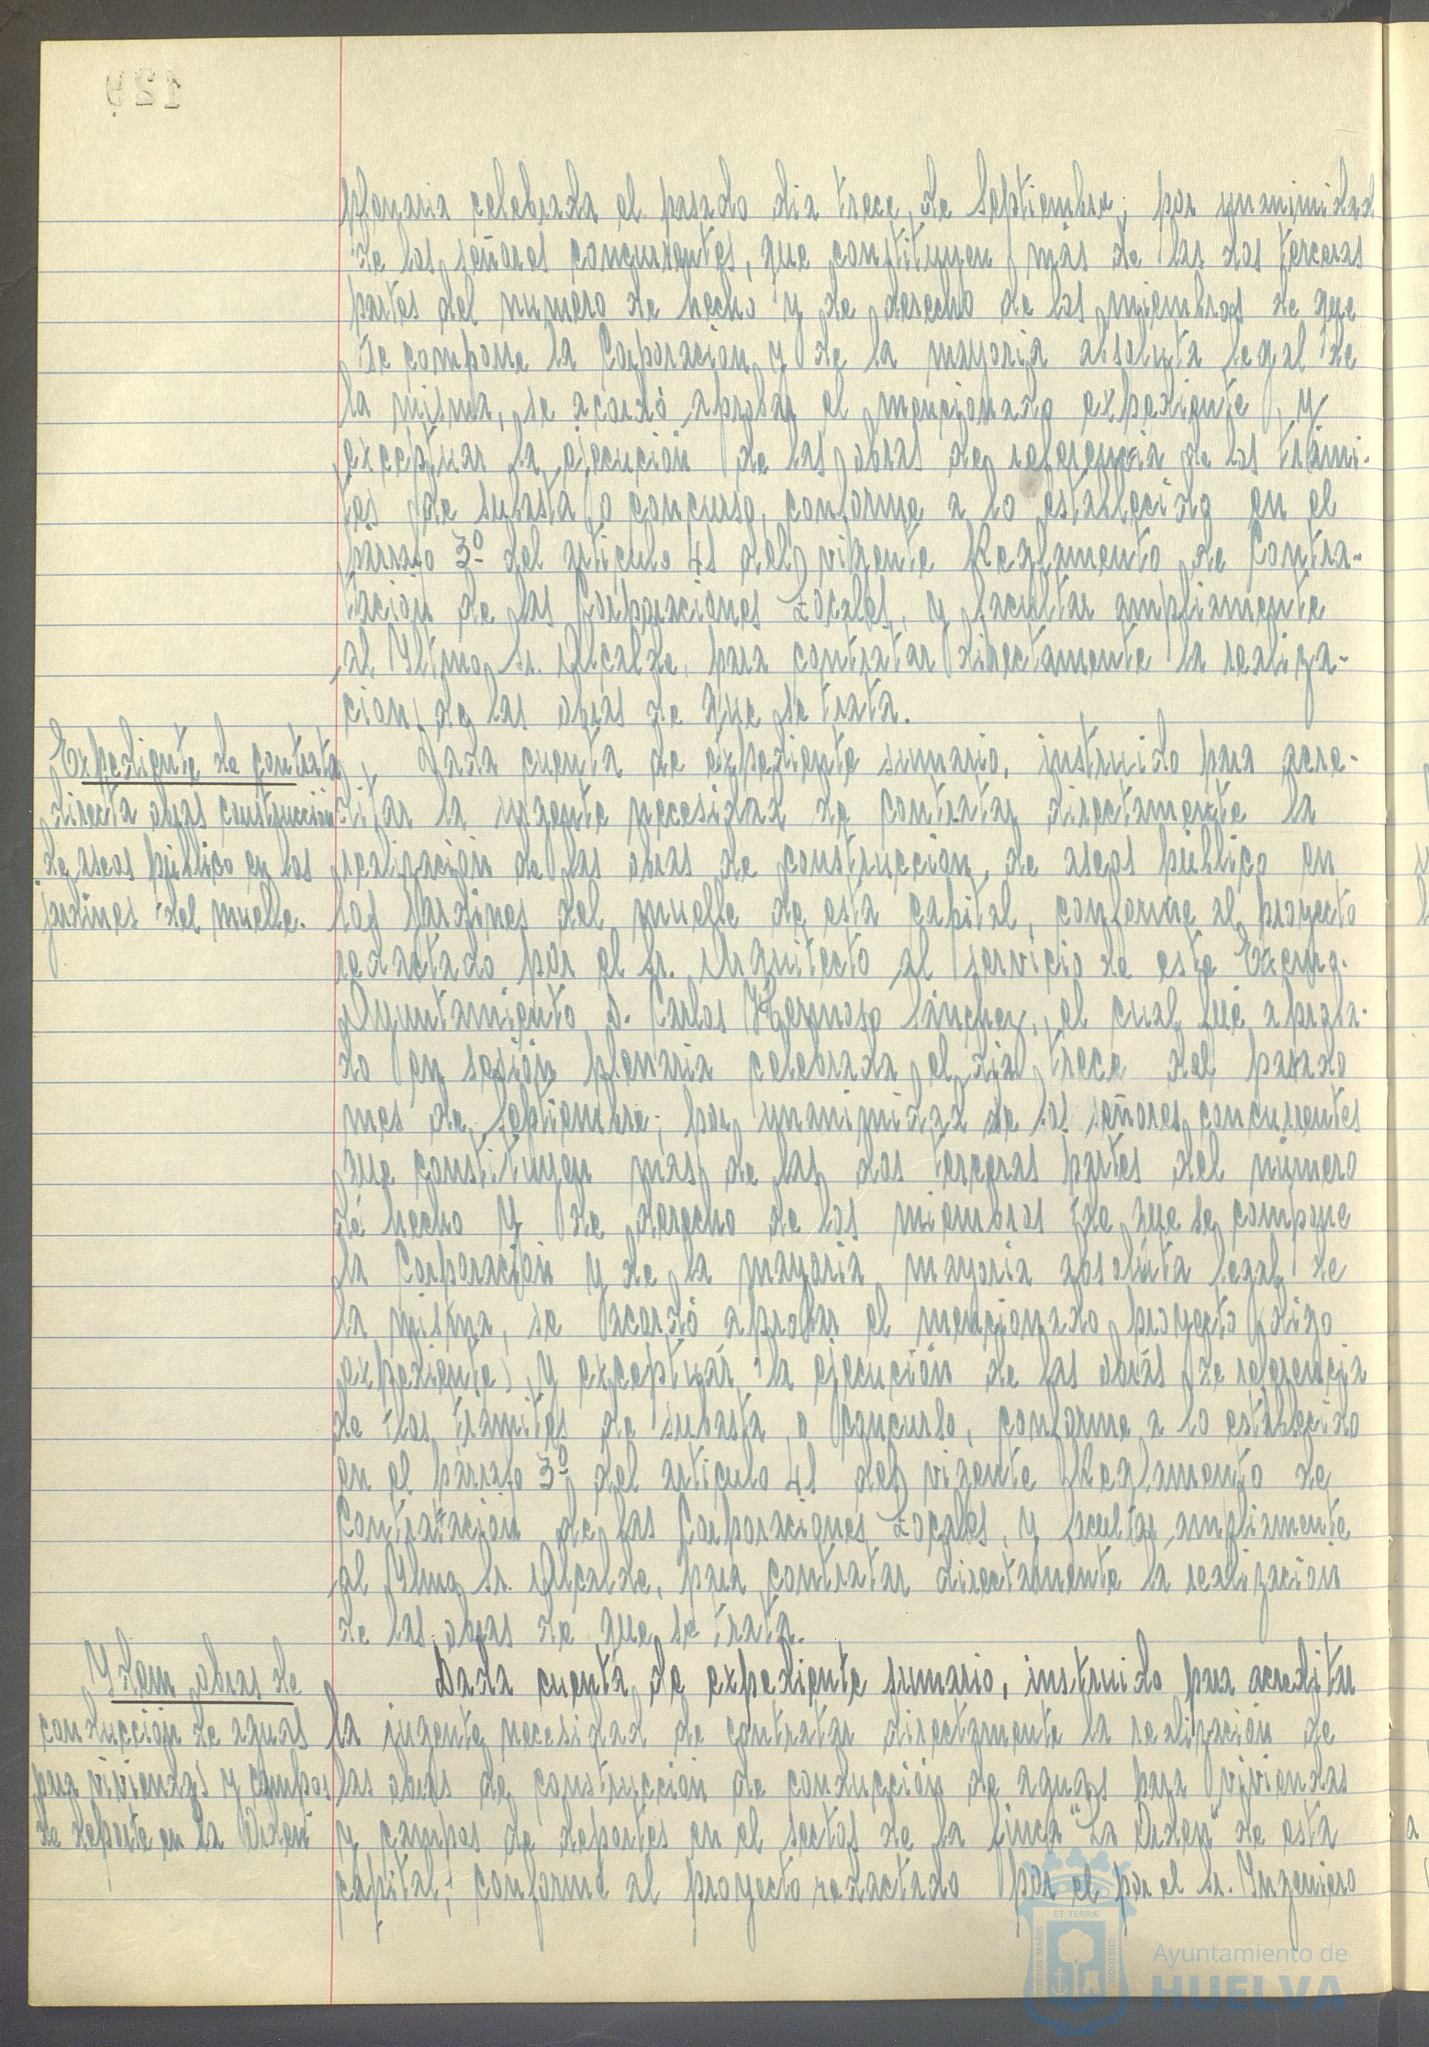 plenaria celebrada el pasado dia trece de Septiembre; por unanimidad
de los señores concurrentes, que constituyen más de las dos terceras
partes del numéro de hecho y de derecho de los miembros de que
se compone la Corporación y de la mayoria absoluta legal de
la misma, se acordó aprobar el mencionado expediente, y
exceptuar la ejecución de las obras de referencia de los trámi-
tes de subasta o concurso, conforme a lo establecido en el
párrafo 3º del artículo 41 del vigente Reglamento de Contra-
tación de las Corporaciones Locales, y facultar ampliamente
al Iltmo. Sr. Alcalde, para contratar directamente la realiza-
ción de las obras de que se trata.
Expediente de contrata
directa obras construcción
de aseos público en los
jardines del muelle.
Dada cuenta de expediente sumario, instruido para acre-
ditar la urgente necesidad de contratar directamente la
realización de las obras de construcción de aseos público en
los Jardines del muelle de esta capital, conforme al proyecto
redactado por el Sr. Arquitecto al servicio de este Excmo.
Ayuntamiento D. Carlos Hermoso Sánchez, el cual fué aproba-
do en sesión plenaria celebrada el dia trece del pasado
mes de Septiembre; por unanimidad de los señores concurrentes
que constituyen mas de las dos terceras partes del número
de hecho y de derecho de los miembros de que se compone
la Corporación y de la mayoria mayoria absoluta legal de
la misma, se acordó aprobar el mencionado proyecto (digo
expediente) y exceptuar la ejecución de las obras de referencia
de los trámites de subasta o concurso, conforme a lo establecido
en el párrafo 3º del artículo 41 del vigente Reglamento de
Contratación de las Corporaciones Locales, y facultar ampliamente
al Ilmo. Sr. Alcalde, para contratar directamente la realización
de las obras de que se trata.
Idem obras de
conducción de aguas
para viviendas y campos
de deporte en la Orden
Dada cuenta de expediente sumario, instruido para acreditar
la urgente necesidad de contratar directamente la realización de
las obras de construcción de conducción de aguas para viviendas
y campos de deportes en el sector de la finca "La Orden" de esta
capital, conforme al proyecto redactado por el por el Sr. Ingeniero
ET TERRAE
PORTUS MARIS
CUSTODIA
Ayuntamiento de
HUELVA